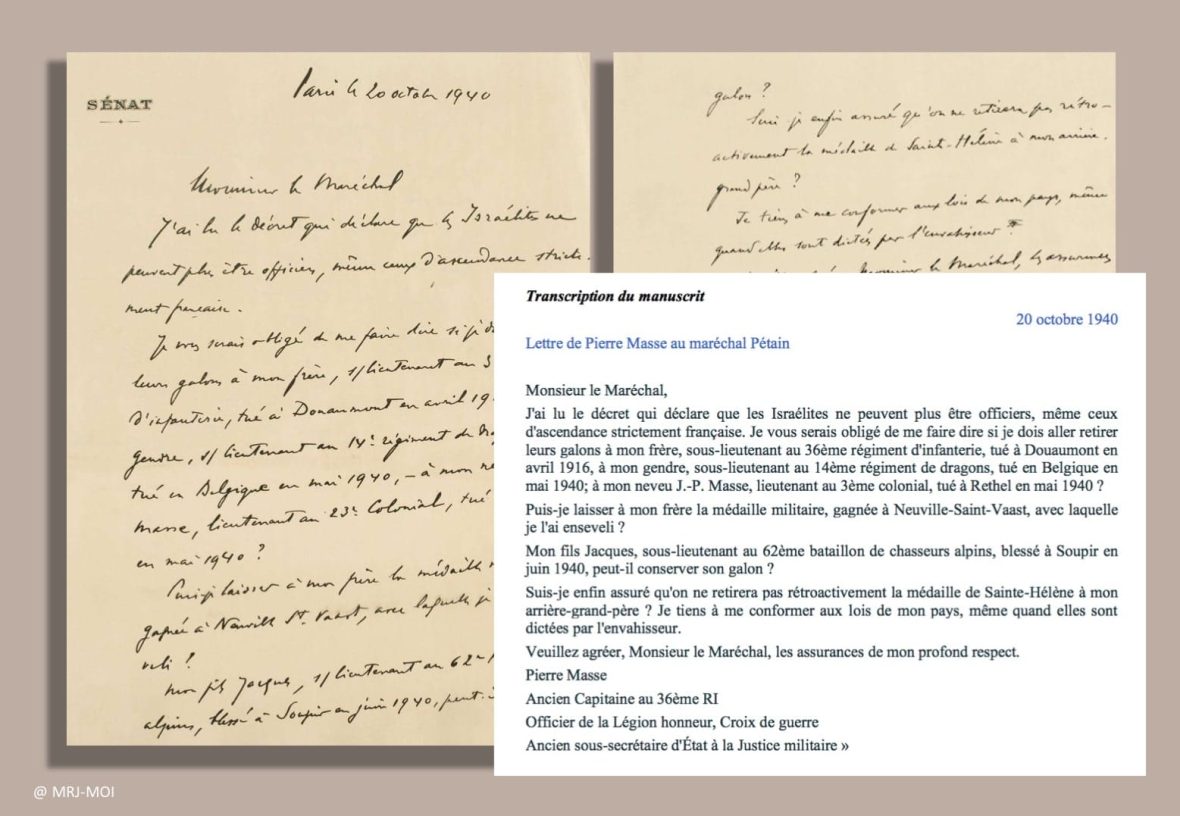 SÉNAT
Paris le 20 octobre 1940
Monsieur le Maréchal
J'ai lu le décret qui déclare que les Israélites ne
peuvent plus être officiers, même ceux d'ascendance stricte-
ment française.
Je vous serais obligé de me faire dire si je
leurs galons à mon frère, s/lieutenant au 3
d'infanterie, tué à Douaumont en avril 19
gendre, s/lieutenant au 14e régiment de
tué en Belgique en mai 1940, – à mon
Masse, lieutenant au 23e Colonial, tué
en mai 1940 ?
Puis-je laisser à mon frère la médaille
gagnée à Neuville St. Vaast, avec laquelle je
veli ?
Mon fils Jacques, s/lieutenant au 62e
alpins, blessé à Soupir en juin 1940, peut-
galon ?
Suis-je enfin assuré qu'on ne retirera pas rétro-
activement la médaille de Sainte-Hélène à mon arrière-
grand père ?
Je tiens à me conformer aux lois de mon pays, même
quand elles sont dictées par l'envahisseur
Monsieur le Maréchal, les assurances
Transcription du manuscrit
20 octobre 1940
Lettre de Pierre Masse au maréchal Pétain
Monsieur le Maréchal,
J'ai lu le décret qui déclare que les Israélites ne peuvent plus être officiers, même ceux
d'ascendance strictement française. Je vous serais obligé de me faire dire si je dois aller retirer
leurs galons à mon frère, sous-lieutenant au 36ème régiment d'infanterie, tué à Douaumont en
avril 1916, à mon gendre, sous-lieutenant au 14ème régiment de dragons, tué en Belgique en
mai 1940; à mon neveu J.-P. Masse, lieutenant au 3ème colonial, tué à Rethel en mai 1940 ?
Puis-je laisser à mon frère la médaille militaire, gagnée à Neuville-Saint-Vaast, avec laquelle
je l'ai enseveli ?
Mon fils Jacques, sous-lieutenant au 62ème bataillon de chasseurs alpins, blessé à Soupir en
juin 1940, peut-il conserver son galon ?
Suis-je enfin assuré qu'on ne retirera pas rétroactivement la médaille de Sainte-Hélène à mon
arrière-grand-père ? Je tiens à me conformer aux lois de mon pays, même quand elles sont
dictées par l'envahisseur.
Veuillez agréer, Monsieur le Maréchal, les assurances de mon profond respect.
Pierre Masse
Ancien Capitaine au 36ème RI
Officier de la Légion honneur, Croix de guerre
Ancien sous-secrétaire d'État à la Justice militaire »
@ MRJ-MOI